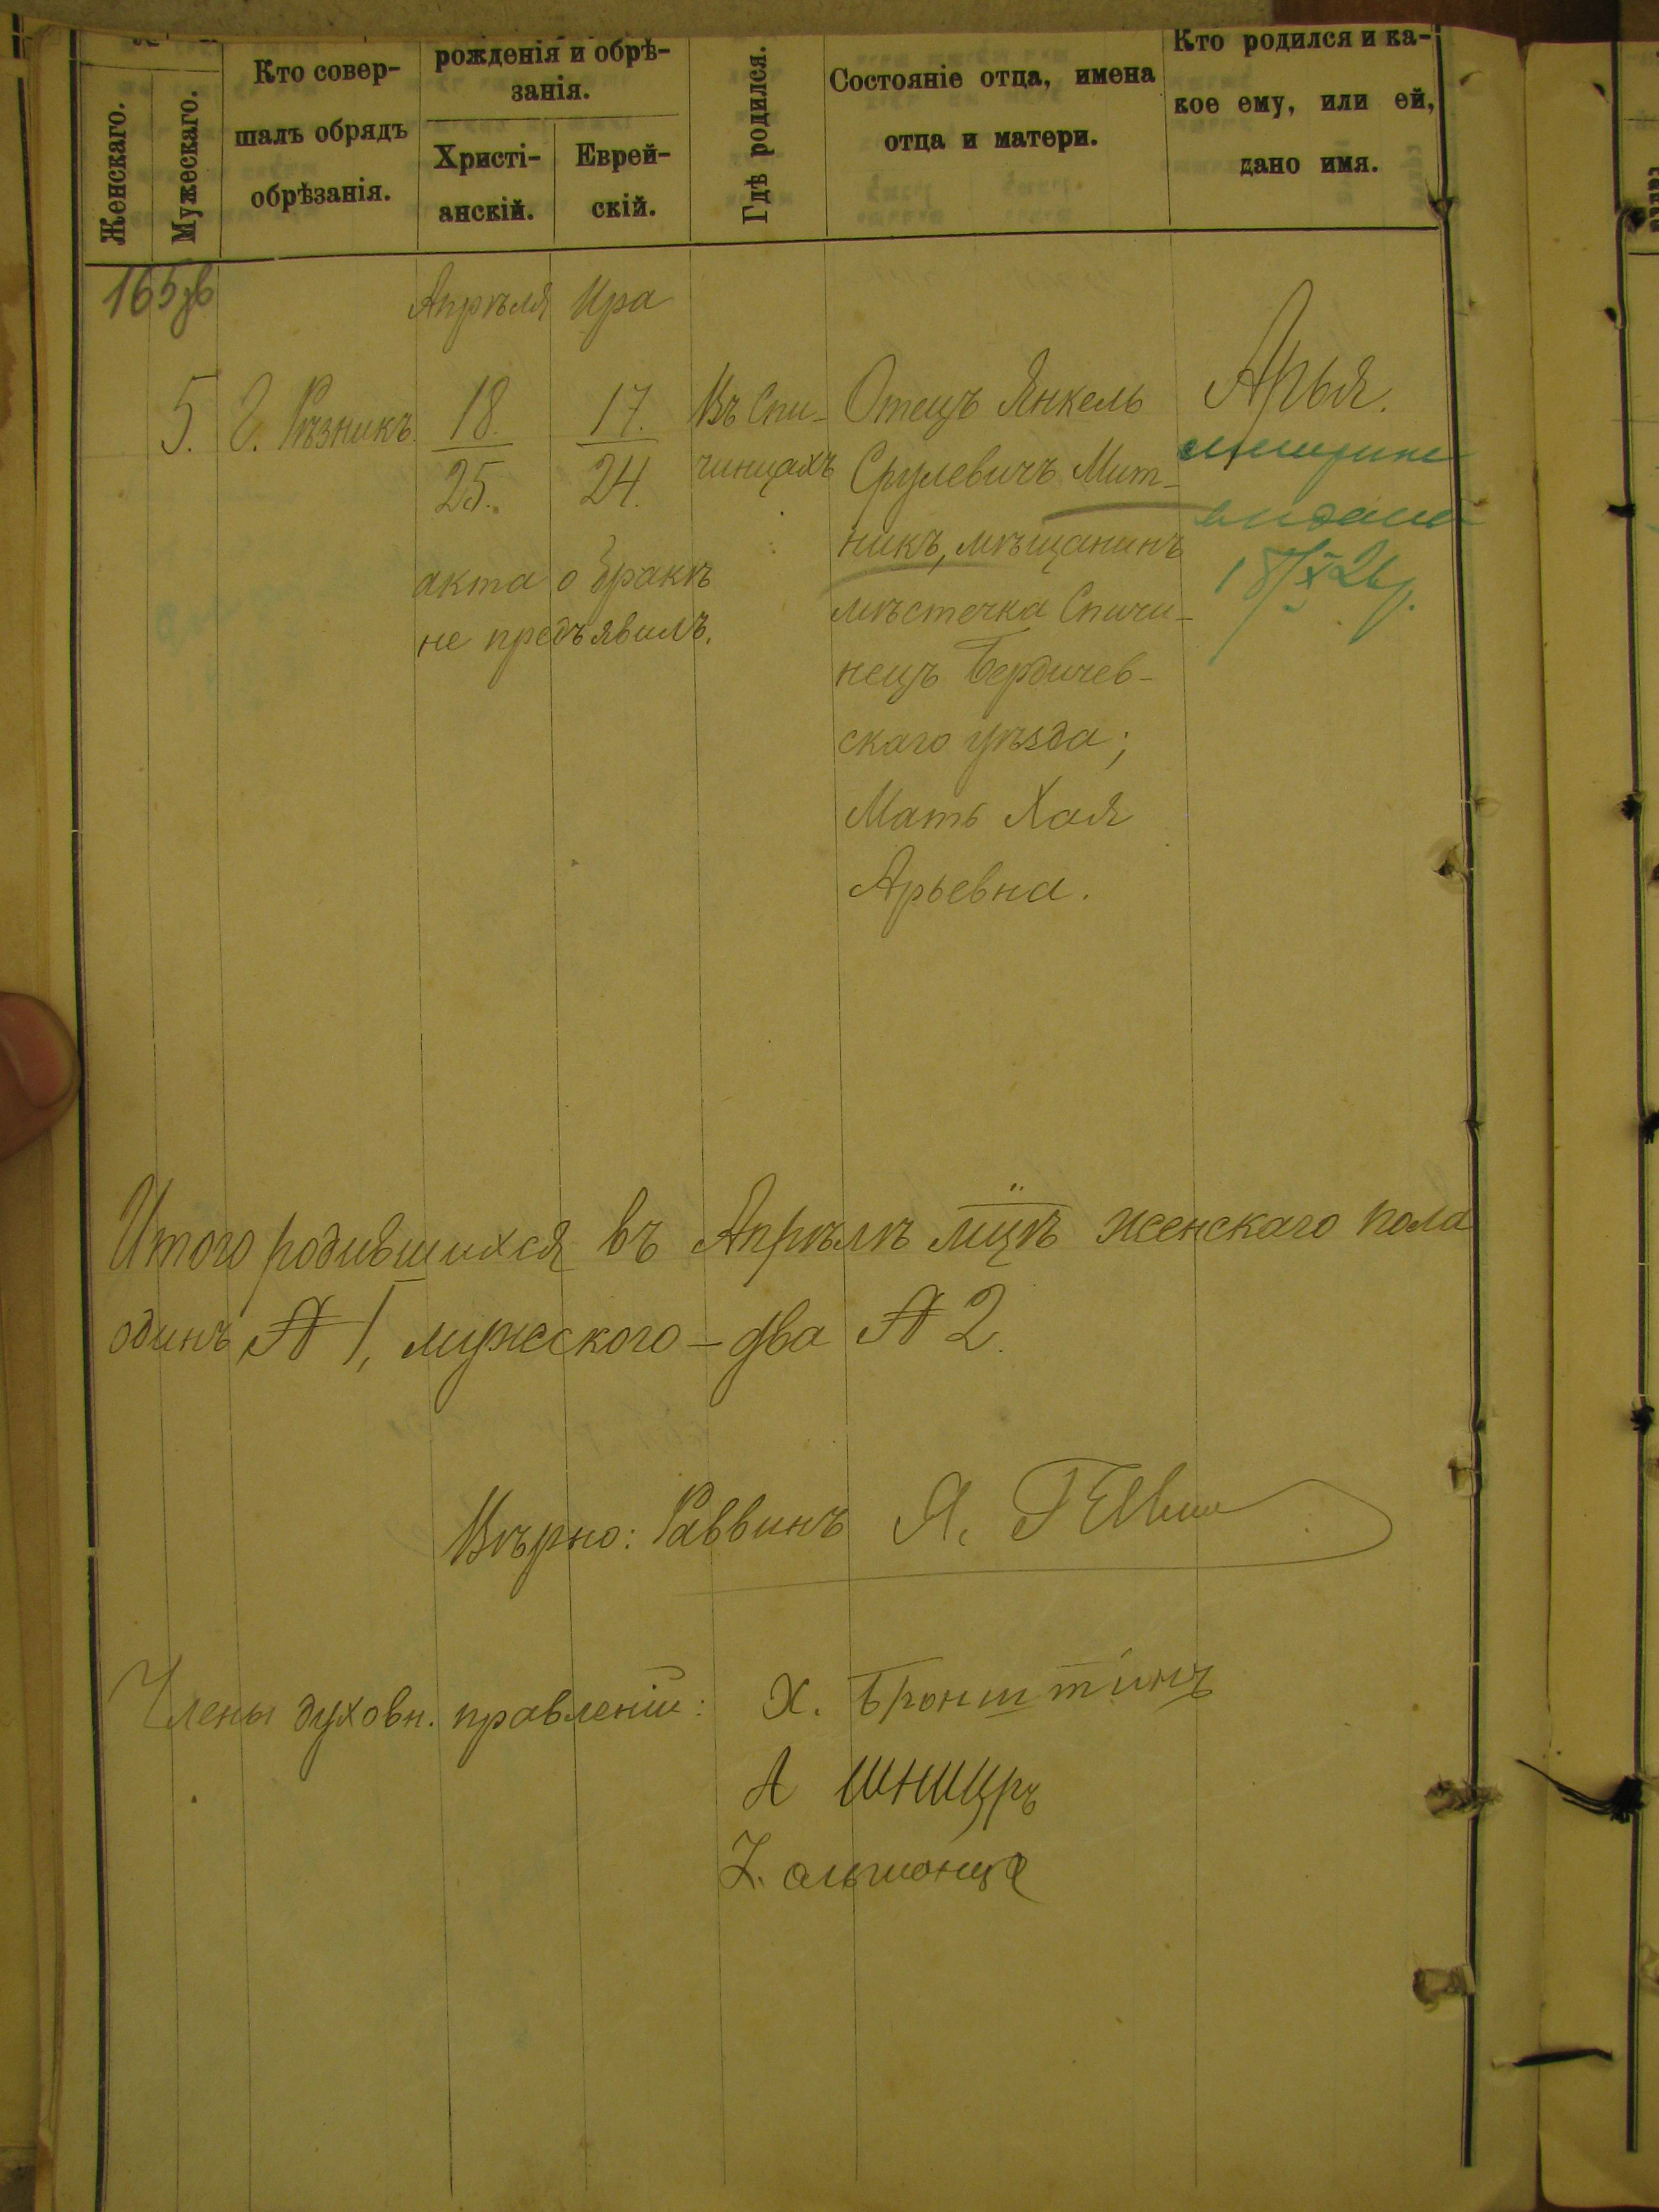 Женскаго.
Мужескаго.
Кто совер-
шалъ обрядъ
обрѣзанія.
рожденія и обрѣ-
занія.
Христі-
анскій.
Еврей-
скій.
Гдѣ родился.
Состояніе отца, имена
отца и матери.
Кто родился и ка-
кое ему, или ей,
дано имя.
165
Апрѣля Ира
5. Рѣзникъ. 18. 17. Въ Спи-
25. 24. чинцахъ
Отецъ Янкель
Срулевичъ Мит-
никъ, мѣщанинъ
мѣстечка Спичи-
нецъ Бердичев-
скаго уѣзда;
Мать Хая
Арьевна.
Арья.
акта о бракѣ
не предъявилъ.
Итого родившихся въ Апрѣлѣ мцѣ женскаго пола
одинъ № 1, мужескаго – два № 2.
Вѣрно: Раввинъ Я.
Члены духовн. правленія: Х. Бронштинъ
А Шницръ